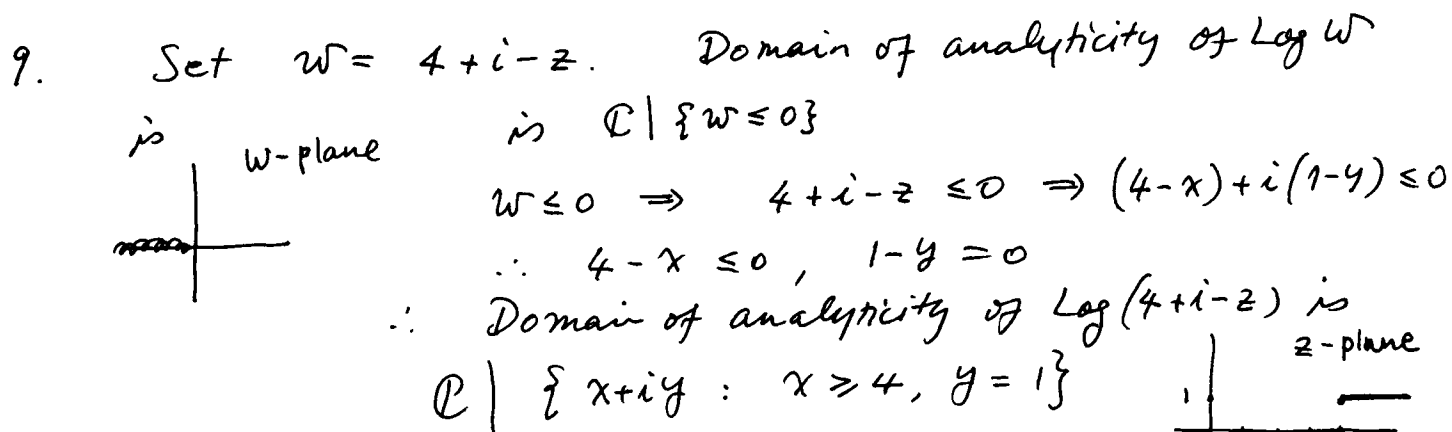 9. Set w = 4 + i - z. Domain of analyticity of Log w
is is ℂ | {w ≤ 0}
w-plane
w ≤ 0 ⇒ 4 + i - z ≤ 0 ⇒ (4-x) + i(1-y) ≤ 0
∴ 4 - x ≤ 0, 1 - y = 0
∴ Domain of analyticity of Log (4+i-z) is
z-plane
ℂ | { x+iy : x ≥ 4, y = 1}
1